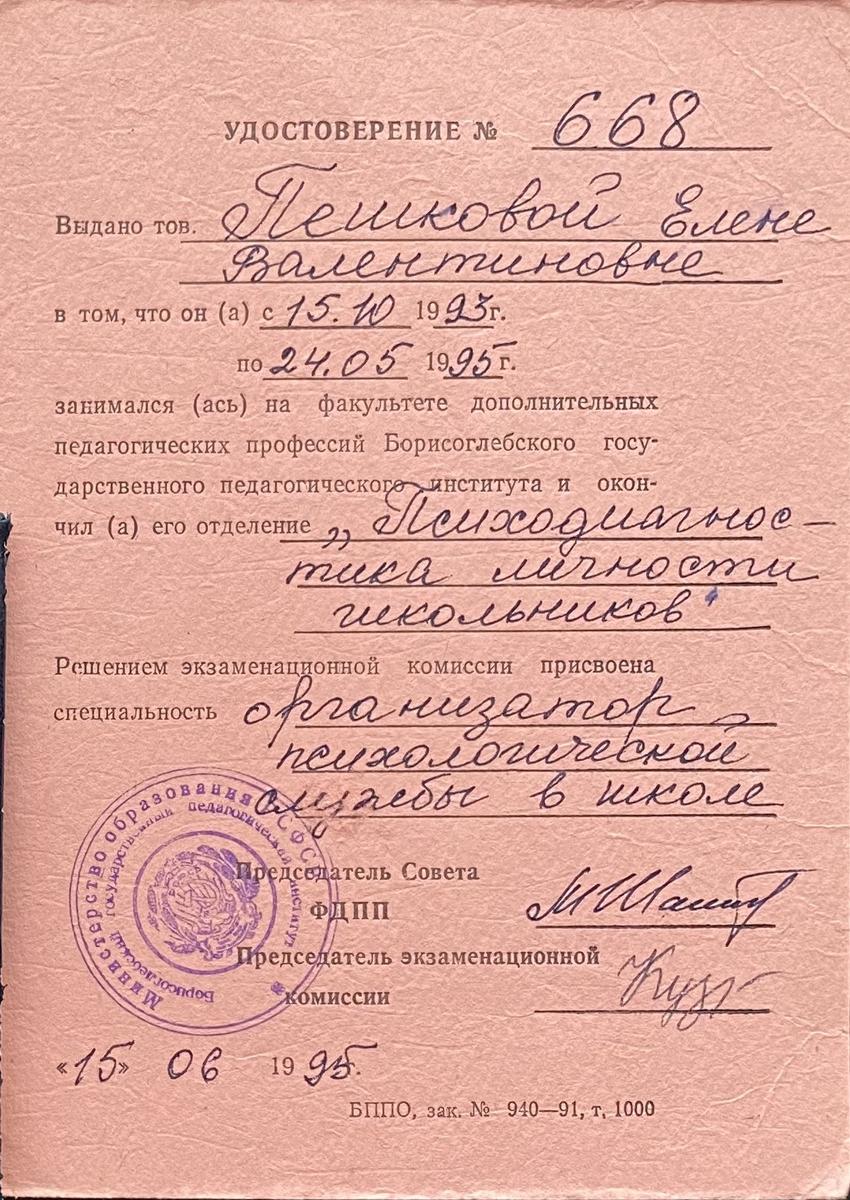 УДОСТОВЕРЕНИЕ № 668
Выдано тов. Пешковой Елене
Валентиновне
в том, что он (а) с 15.10 1993г.
по 24.05 1995г.
занимался (ась) на факультете дополнительных
педагогических профессий Борисоглебского госу-
дарственного педагогического института и окон-
чил (а) его отделение „Психодиагнос-
тика личности
школьников"
Решением экзаменационной комиссии присвоена
специальность организатор
психологической
службы в школе
Министерство образования РСФСР
Борисоглебский государственный педагогический институт
Председатель Совета
ФДПП
Председатель экзаменационной
комиссии
«15» 06 1995г.
БППО, зак. № 940—91, т. 1000